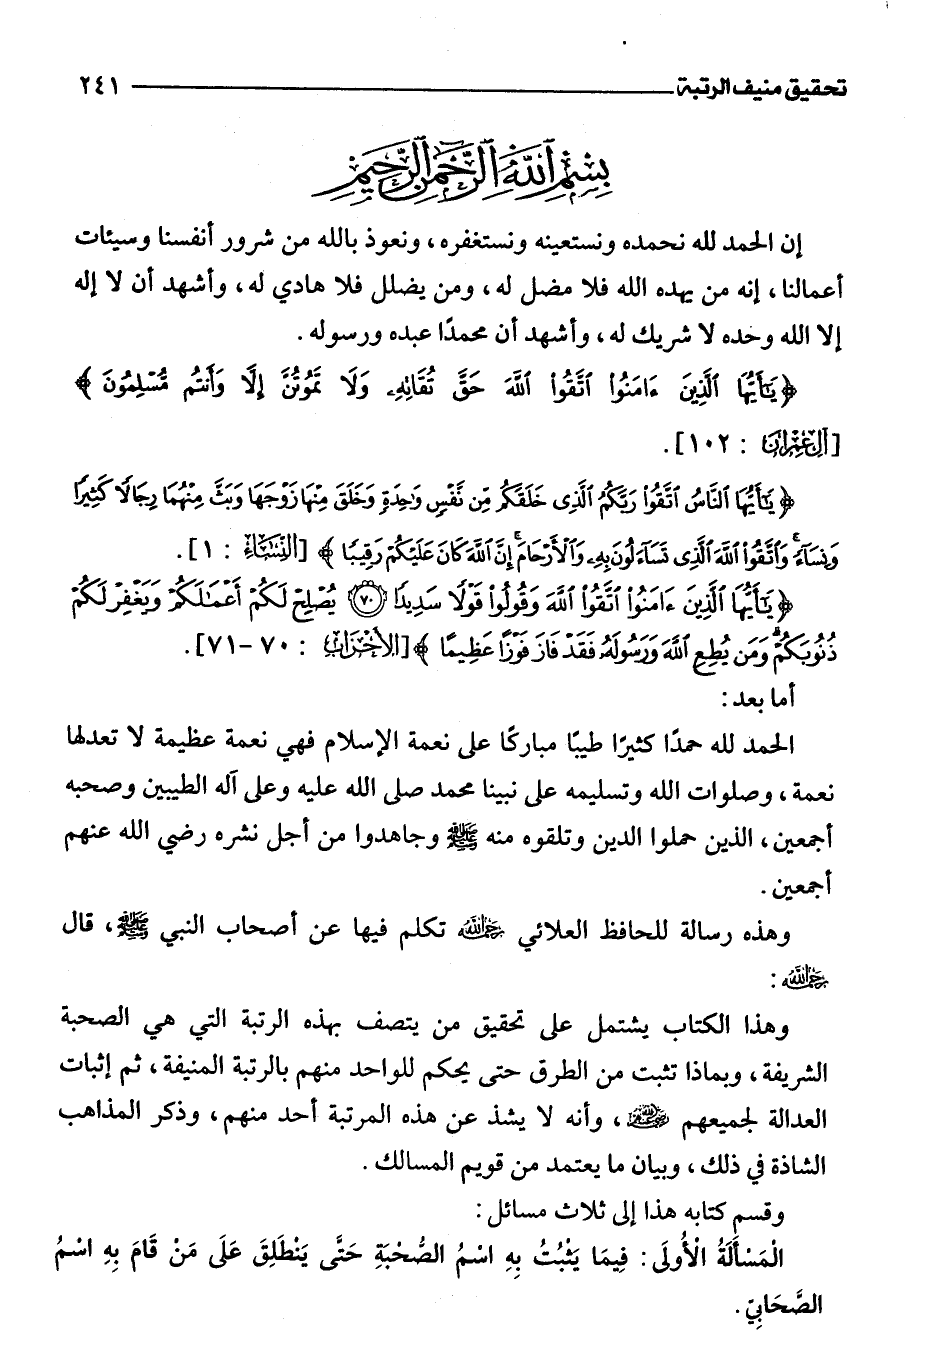 تحقيق منيف الرتبة ٢٤١
بِسْمِ اللَّهِ الرَّحْمَنِ الرَّحِيمِ
إن الحمد لله نحمده ونستعينه ونستغفره، ونعوذ بالله من شرور أنفسنا وسيئات
أعمالنا، إنه من يهده الله فلا مضل له، ومن يضلل فلا هادي له، وأشهد أن لا إله
إلا الله وحده لا شريك له، وأشهد أن محمدًا عبده ورسوله.
﴿يَـٰٓأَيُّهَا ٱلَّذِينَ ءَامَنُوا۟ ٱتَّقُوا۟ ٱللَّهَ حَقَّ تُقَاتِهِۦ وَلَا تَمُوتُنَّ إِلَّا وَأَنتُم مُّسْلِمُونَ﴾
[آل عمران : ١٠٢].
﴿يَـٰٓأَيُّهَا ٱلنَّاسُ ٱتَّقُوا۟ رَبَّكُمُ ٱلَّذِى خَلَقَكُم مِّن نَّفْسٍ وَٰحِدَةٍ وَخَلَقَ مِنْهَا زَوْجَهَا وَبَثَّ مِنْهُمَا رِجَالًا كَثِيرًا
وَنِسَآءً ۚ وَٱتَّقُوا۟ ٱللَّهَ ٱلَّذِى تَسَآءَلُونَ بِهِۦ وَٱلْأَرْحَامَ ۚ إِنَّ ٱللَّهَ كَانَ عَلَيْكُمْ رَقِيبًا﴾ [النساء : ١].
﴿يَـٰٓأَيُّهَا ٱلَّذِينَ ءَامَنُوا۟ ٱتَّقُوا۟ ٱللَّهَ وَقُولُوا۟ قَوْلًا سَدِيدًا ٧٠ يُصْلِحْ لَكُمْ أَعْمَـٰلَكُمْ وَيَغْفِرْ لَكُمْ
ذُنُوبَكُمْ ۗ وَمَن يُطِعِ ٱللَّهَ وَرَسُولَهُۥ فَقَدْ فَازَ فَوْزًا عَظِيمًا﴾ [الأحزاب : ٧٠-٧١].
أما بعد:
الحمد لله حمدًا كثيرًا طيبًا مباركًا على نعمة الإسلام فهي نعمة عظيمة لا تعدلها
نعمة، وصلوات الله وتسليمه على نبينا محمد صلى الله عليه وعلى آله الطيبين وصحبه
أجمعين، الذين حملوا الدين وتلقوه منه ﷺ وجاهدوا من أجل نشره رضي الله عنهم
أجمعين.
وهذه رسالة للحافظ العلائي رحمه الله تكلم فيها عن أصحاب النبي ﷺ، قال
رحمه الله:
وهذا الكتاب يشتمل على تحقيق من يتصف بهذه الرتبة التي هي الصحبة
الشريفة، وبماذا تثبت من الطرق حتى يحكم للواحد منهم بالرتبة المنيفة، ثم إثبات
العدالة لجميعهم رضي الله عنهم، وأنه لا يشذ عن هذه المرتبة أحد منهم، وذكر المذاهب
الشاذة في ذلك، وبيان ما يعتمد من قويم المسالك.
وقسم كتابه هذا إلى ثلاث مسائل:
الْمَسْأَلَةُ الْأُولَى: فِيمَا يَثْبُتُ بِهِ اسْمُ الصُّحْبَةِ حَتَّى يَنْطَلِقَ عَلَى مَنْ قَامَ بِهِ اسْمُ
الصَّحَابِيِّ.